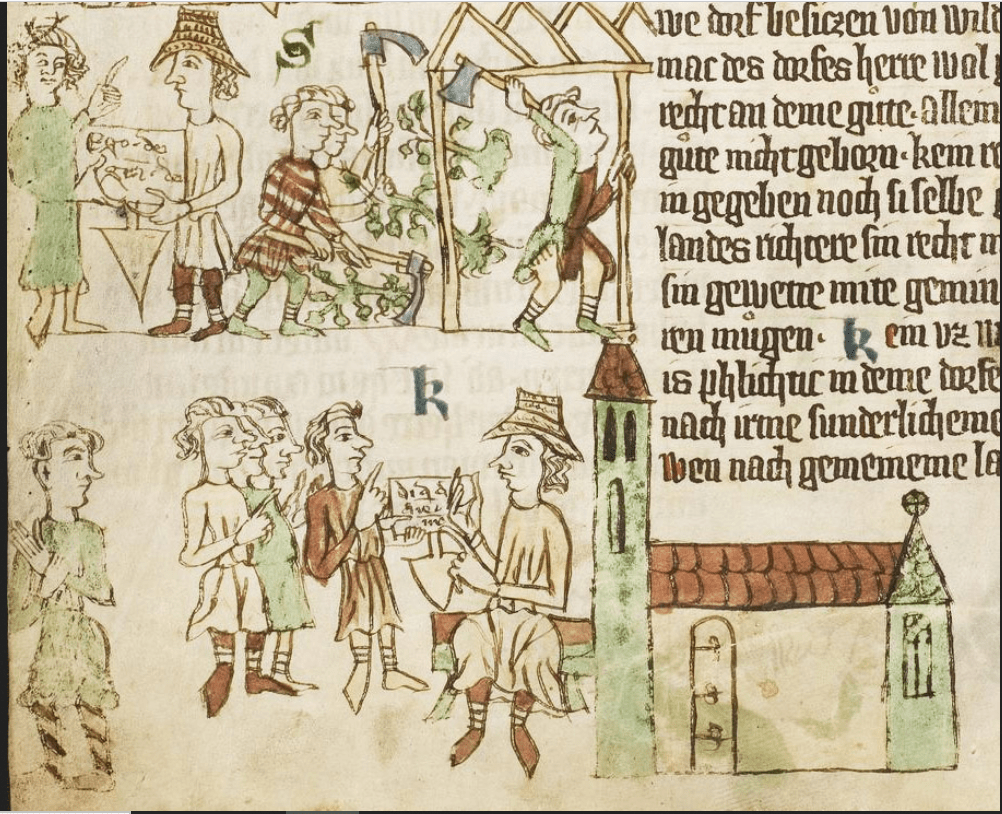 S
we dorf besiczen von wild
mac des dorfes herre wol
recht an deme gůte· allein
gůte nicht geborn· kein re
in gegeben noch si selbe
landes richtere sin recht
sin gewette mite gemin
ren můgen· kein vz
is phlichtic in deme dorfe
nach irme sunderlicheme
wen nach gemeineme la
Ego· de
k